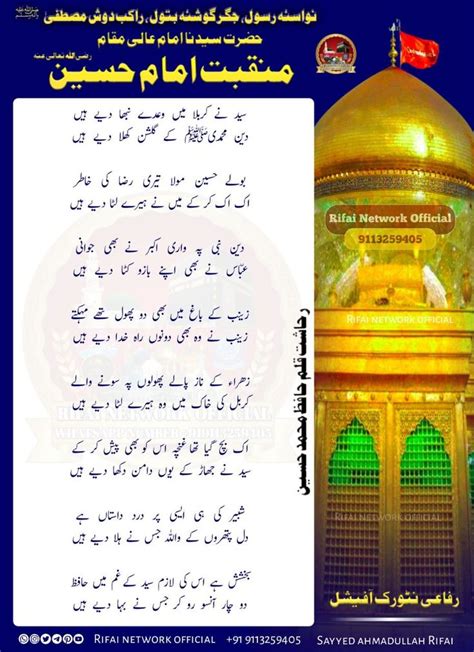 نواسئہ رسول، جگر گوشئہ بتول، راکب دوش مصطفیٰ
حضرت سیدنا امام عالی مقام
منقبت امام حسین رضی اللہ تعالیٰ عنہ
سید نے کربلا میں وعدے نبھا دیے ہیں
دین محمدی ﷺ کے گلشن کھلا دیے ہیں
بولے حسین مولا تیری رضا کی خاطر
اک اک کر کے میں نے ہیرے لٹا دیے ہیں
دین نبی پہ واری اکبر نے بھی جوانی
عبّاس نے بھی اپنے بازو کٹا دیے ہیں
زینب کے باغ میں بھی دو پھول تھے مہکتے
زینب نے وہ بھی دونوں راہ خدا دیے ہیں
زھراء کے ناز پالے پھولوں پہ سونے والے
کربل کی خاک میں وہ ہیرے لٹا دیے ہیں
اک بچ گیا تھا غنچہ اس کو بھی پیش کر کے
سید نے جھاڑ کے یوں دامن دکھا دیے ہیں
شبیر کی ہی ایسی پر درد داستاں ہے
دل پتھروں کے واللہ جس نے ہلا دیے ہیں
بخشش ہے اس کی لازم سید کے غم میں حافظ
دو چار آنسو رو کر جس نے بہا دیے ہیں
Rifai Network Official
9113259405
RIFAI NETWORK OFFICIAL
رحاشت قلم حافظ محمد حسین
RIFAI NETWORK OFFICIAL
RIFAI NETWORK OFFICIAL
رفاعی نٹورک آفیشل
RIFAI NETWORK OFFICIAL +91 9113259405 SAYYED AHMADULLAH RIFAI